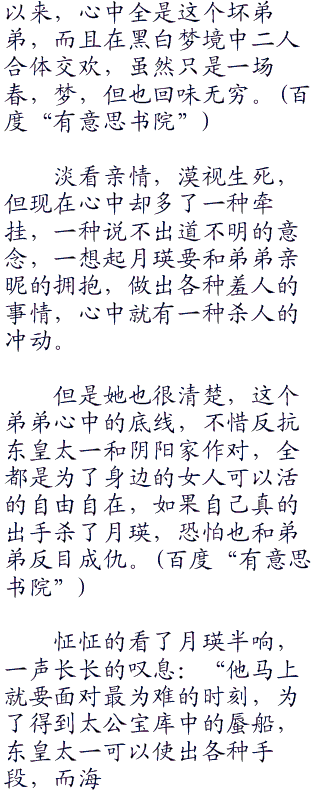 以来，心中全是这个坏弟
弟，而且在黑白梦境中二人
合体交欢，虽然只是一场
春，梦，但也回味无穷。(百
度“有意思书院”)
淡看亲情，漠视生死，
但现在心中却多了一种牵
挂，一种说不出道不明的意
念，一想起月瑛要和弟弟亲
昵的拥抱，做出各种羞人的
事情，心中就有一种杀人的
冲动。
但是她也很清楚，这个
弟弟心中的底线，不惜反抗
东皇太一和阴阳家作对，全
都是为了身边的女人可以活
的自由自在，如果自己真的
出手杀了月瑛，恐怕也和弟
弟反目成仇。(百度“有意思
书院”)
怔怔的看了月瑛半响，
一声长长的叹息：“他马上
就要面对最为难的时刻，为
了得到太公宝库中的蜃船，
东皇太一可以使出各种手
段，而海